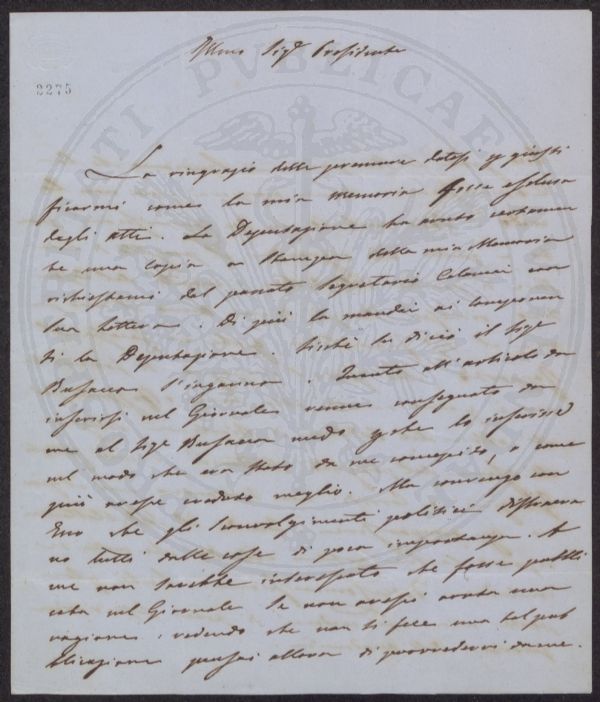 Illmo Sigr Presidente
2275
La ringrazio delle premure datesi p giusti
ficarmi come la mia memoria fosse esclusa
dagli atti. La Deputazione ha avuto certamen
te una copia a stampa della mia Memoria
richiestami dal passato Segretario Colonna con
sua lettera. Di più la mandai ai componen
ti la Deputazione. Sicchè le dico il Sigr
Busacca s'inganna. Quanto all'articolo da
inserirsi nel Giornale venne consegnato da
me al Sigr Busacca onde lo inserisse
nel modo che era stato da me concepito, o come
più avesse creduto meglio. Ma convengo con
che gli sconvolgimenti politici distraeva
no tutti dalle cose di poca importanza. A
me non sarebbe interessato che fosse pubbli
cata nel Giornale se non avessi avuta una
ragione: vedendo che non si fece una tal pub
blicazione pensai allora di provvedervi da me.